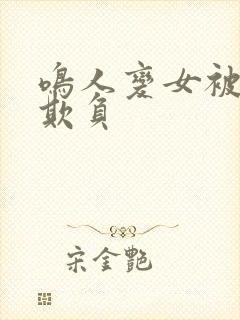 鳴人變女被
欺負
宋金艷